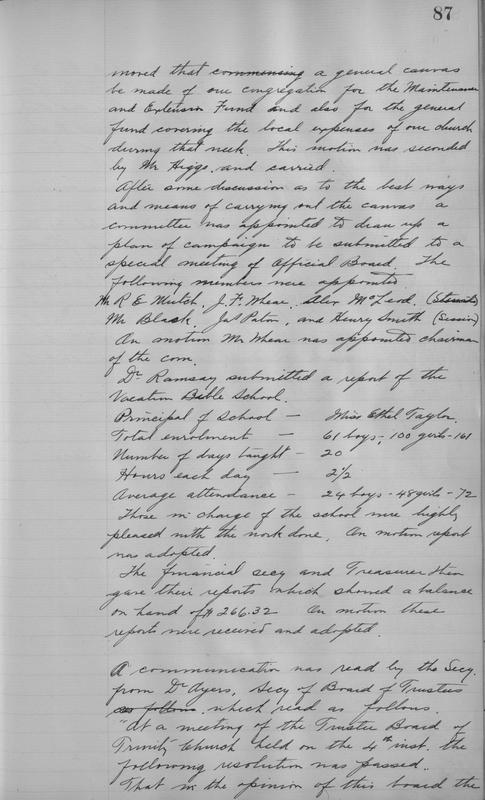 87
moved that commencing a general canvas
be made of our congregation for the Maintenance
and Extension Fund and also for the general
fund covering the local expenses of our church
during that week. This motion was seconded
by Mr Higgs. and carried.
After some discussion as to the best ways
and means of carrying out the canvas a
committee was appointed to draw up a
plan of campaign to be submitted to a
special meeting of Official Board. The
following members were appointed
Mr R E Mutch, J. F. Whear. Alex McLeod, (Stewards)
Mr Black. Jas Paton, and Henry Smith (Session)
On motion Mr Whear was appointed chairman
of the com.
Dr Ramsay submitted a report of the
Vacation Bible School.
Principal of School — Miss Ethel Taylor.
Total enrolment — 61 boys, 100 girls - 161
Number of days taught - 20
Hours each day — 2 1/2
Average attendance - 24 boys - 48 girls - 72
Those in charge of the school were highly
pleased with the work done, On motion report
was adopted.
The financial secy and Treasurer then
gave their reports which showed a balance
on hand of $266.32 On motion these
reports were received and adopted.
A communication was read by the Secy.
from Dr Ayers, Secy of Board of Trustees
as follows. which read as follows.
"At a meeting of the Trustee Board of
Trinity Church held on the 4th inst. the
following resolution was passed.
That in the opinion of this board the